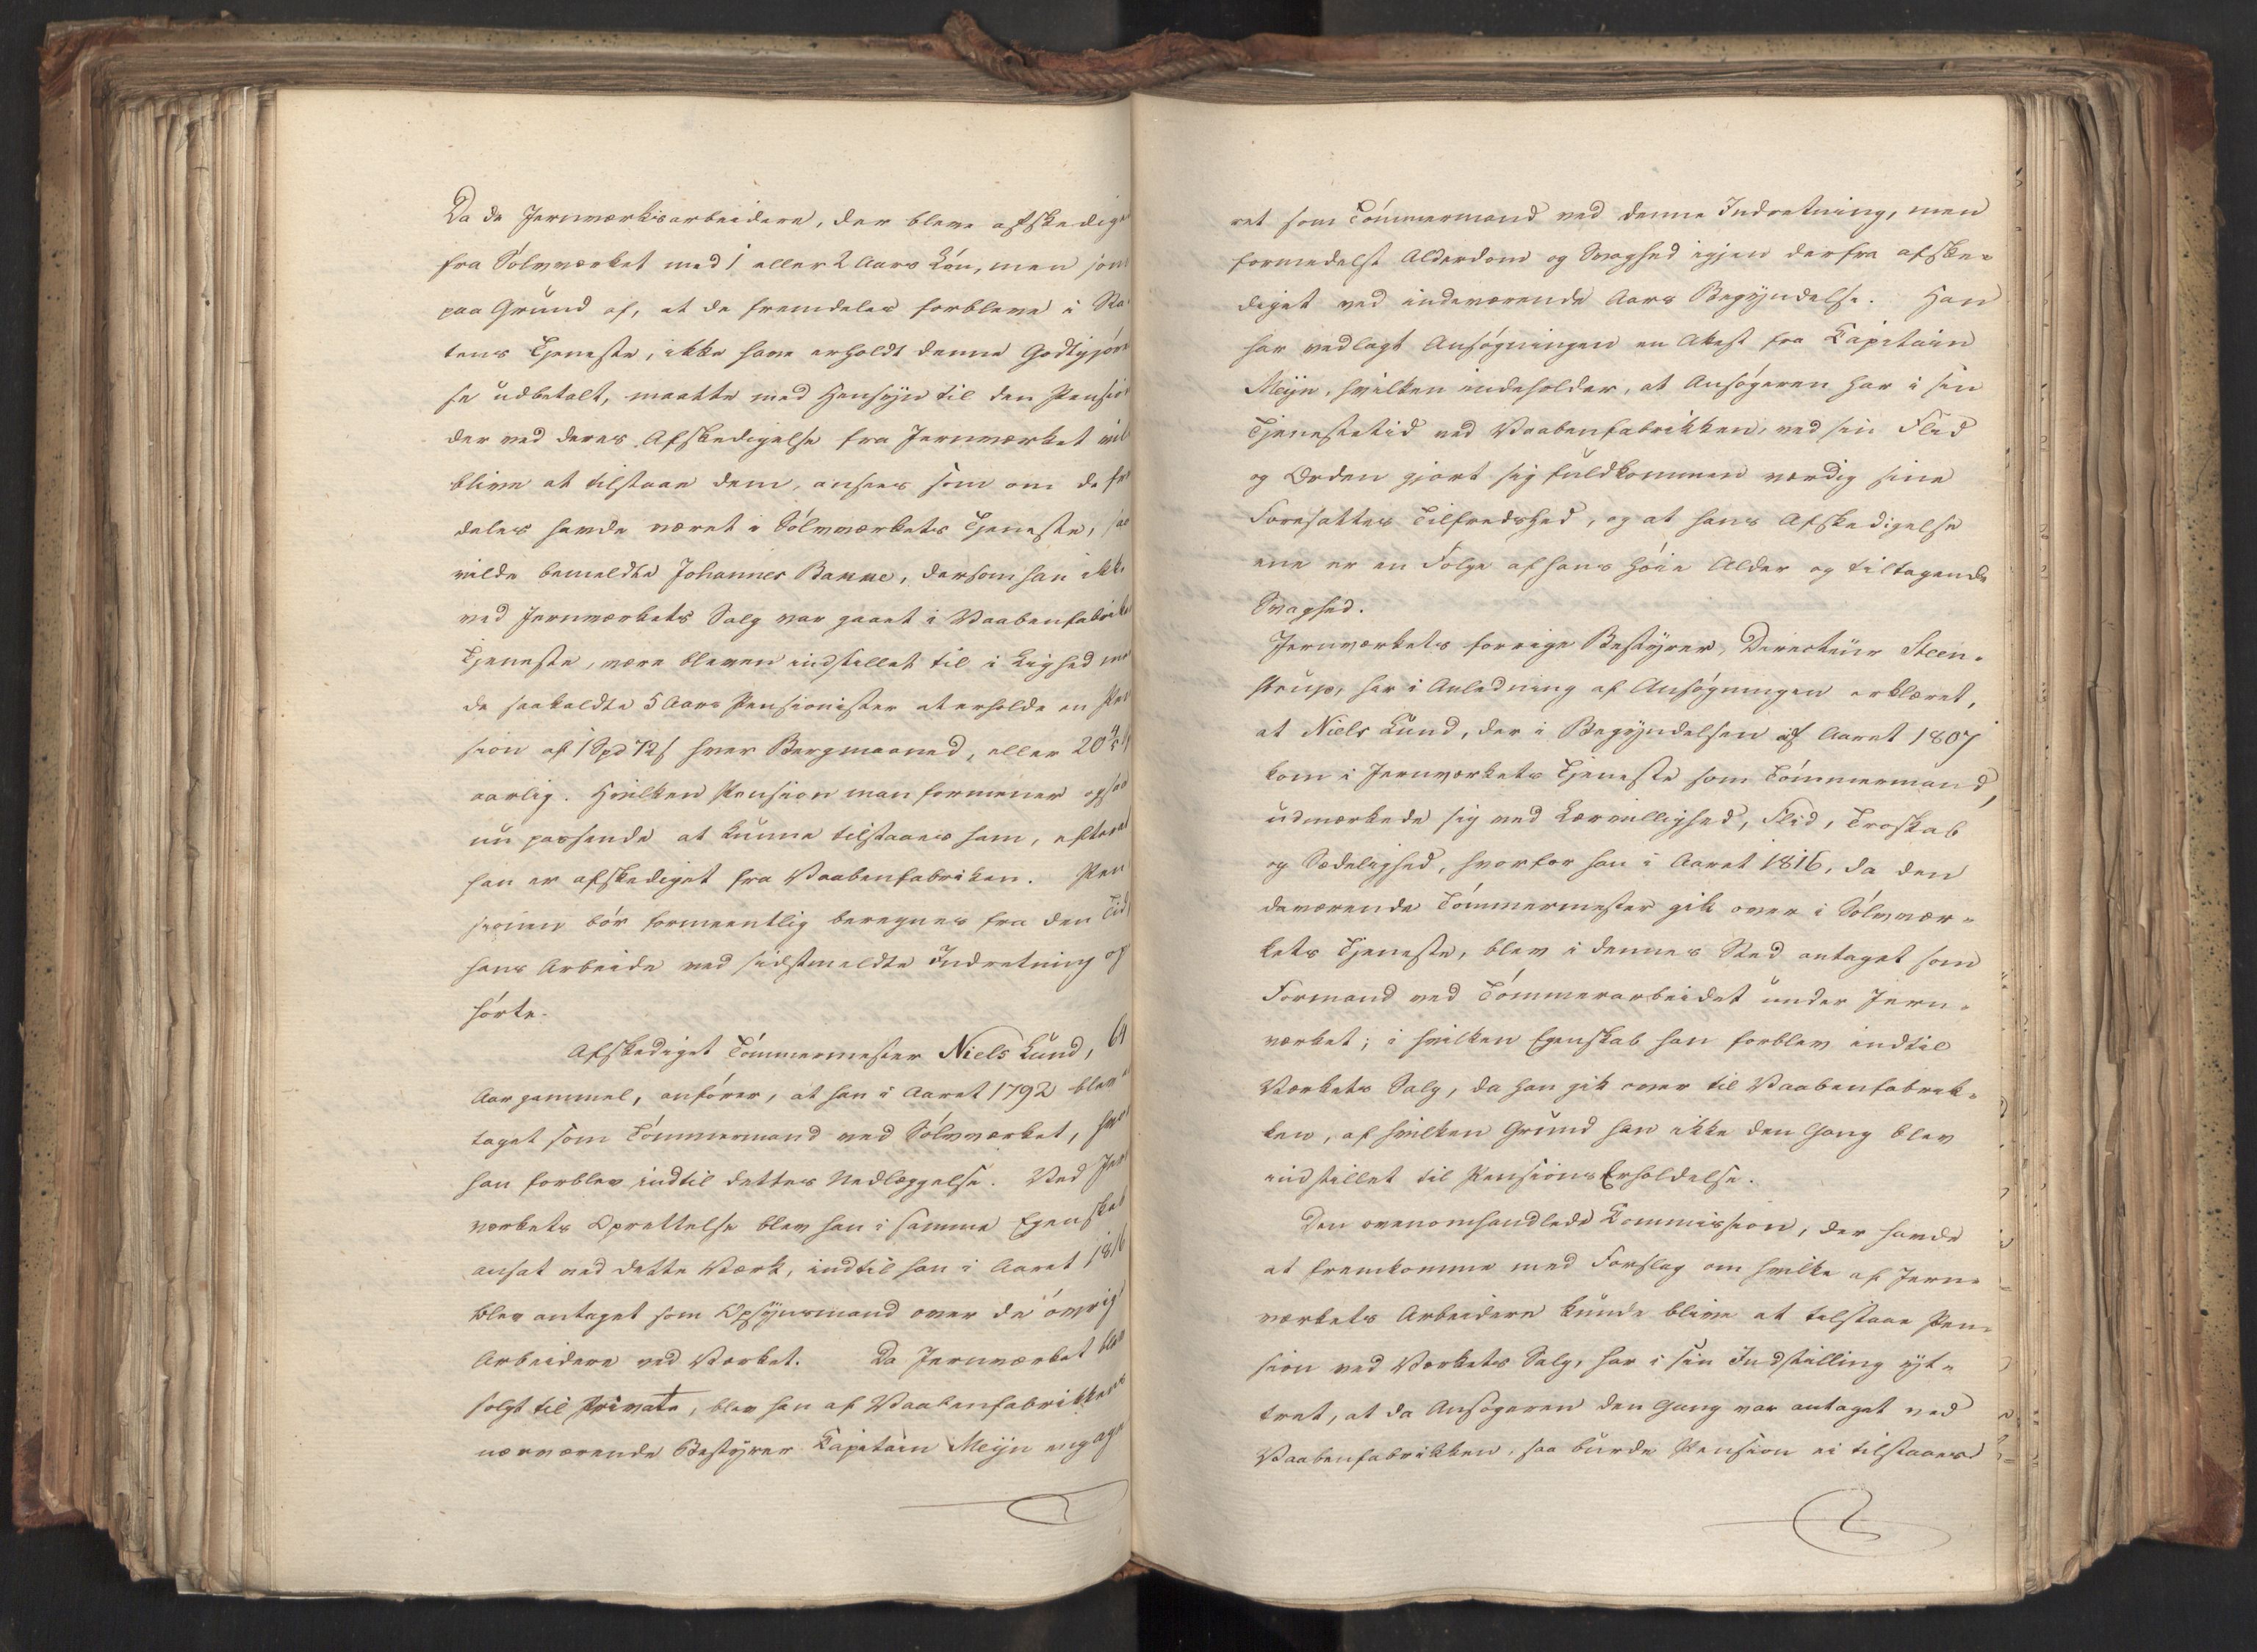 Da de Jernværksarbeidere, der bleve afskedige
fra Sølvværket med 1 eller 2 Aars Løn, men som
paa Grund af, at de fremdeles forbleve i Sta
tens Tjeneste, ikke have erholdt denne Godtgjørel
se udbetalt, maatte med Hensyn til den Pension
der ved deres Afskedigelse fra Jernværket vil
blive at tilstaae dem, ansees som om de frem
deles havde været i Sølvværkets Tjeneste, saa
vilde bemeldte Johannes Banne, dersom han ikke
ved Jernværkets Salg var gaaet i Vaabenfabrikens
Tjeneste, være bleven indstillet til i Lighed med
de saakaldte 5 Aars Pensionister at erholde en Pen
sion af 1 Spd 72 s hver Bergmaaned, eller 20 4/5
aarlig. Hvilken Pension man formener ogsaa
nu passende at kunne tilstaaes ham, efterat
han er afskediget fra Vaabenfabriken. Pen
sionen bør formeentlig beregnes fra den Tid
hans Arbeide ved sidstmeldte Indretning op
hørte.
Afskediget Tømmermester Niels Lund, 64
Aar gammel, anfører, at han i Aaret 1792 blev an
taget som Tømmermand ved Sølvværket, hvor
han forblev indtil dettes Nedlæggelse. Ved Jern
værkets Oprettelse blev han i samme Egenskab
ansat ved dette Værk, indtil han i Aaret 1816
blev antaget som Opsynsmand over de øvrige
Arbeidere ved Værket. Da Jernværket blev
solgt til Private, blev han af Vaabenfabrikkens
nærværende Bestyrer Capitain Meijn engage
ret som Tømmermand ved denne Indretning, men
formedelst Alderdom og Svaghed igjen derfra afske-
diget ved indeværende Aars Begyndelse. Han
har vedlagt Ansøgningen en Attest fra Capitain
Meijn, hvilken indeholder, at Ansøgeren har i sin
Tjenestetid ved Vaabenfabrikken, ved sin Flid
og Orden gjort sig fuldkommen værdig sine
Foresattes Tilfredshed, og at hans Afskedigelse
ene er en Følge af hans høie Alder og tiltagende
Svaghed.
Jernværkets forrige Bestyrer, Directeur Steen-
strup, har i Anledning af Ansøgningen erklæret,
at Niels Lund, der i Begyndelsen af Aaret 1807
kom i Jernværkets Tjeneste som Tømmermand,
udmærkede sig ved Lærvillighed, Flid, Troskab
og Sædelighed, hvorfor han i Aaret 1816, da den
daværende Tømmermester gik over i Sølvvær-
kets Tjeneste, blev i dennes Sted antaget som
Formand ved Tømmerarbeidet under Jern-
værket; i hvilken Egenskab han forblev indtil
Værkets Salg, da han gik over til Vaabenfabrik-
ken, af hvilken Grund han ikke den Gang blev
indstillet til Pensions Erholdelse.
Den ovenomhandlede Commission, der havde
at fremkomme med Forslag om hvilke af Jern-
værkets Arbeidere kunde blive at tilstaae Pen-
sion ved Værkets Salg, har i sin Indstilling yt-
tret, at da Ansøgeren den Gang var antaget ved
Vaabenfabrikken, saa burde Pension ei tilstaaes